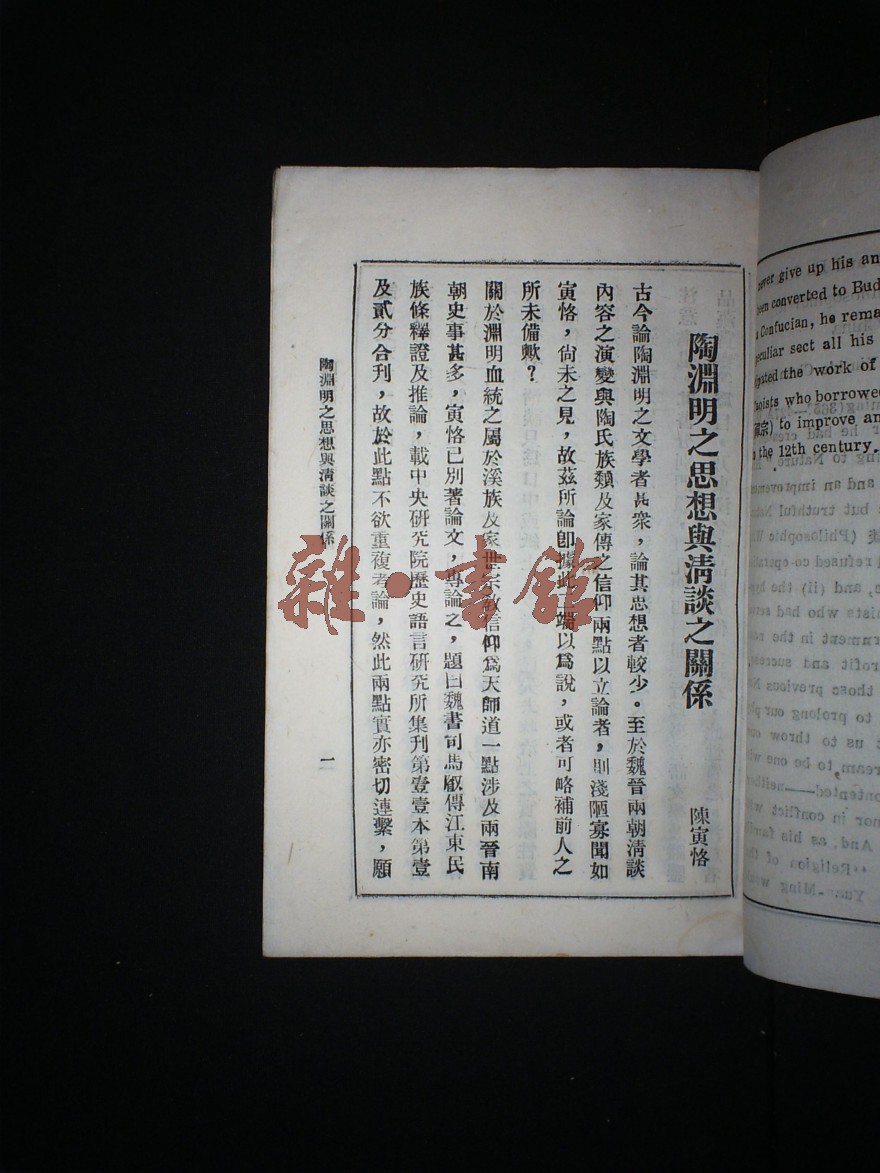 陶淵明之思想與清談之關係
陳寅恪
古今論陶淵明之文學者甚衆，論其思想者較少。至於魏晉兩朝清談
內容之演變與陶氏族類及家傳之信仰兩點以立論者，則淺陋寡聞如
寅恪，尚未之見，故茲所論卽據此端以爲說，或者可略補前人之
所未備歟？
關於淵明血統之屬於溪族及家世宗教信仰爲天師道一點涉及兩晉南
朝史事甚多，寅恪已別著論文，專論之，題曰魏書司馬叡傳江東民
族條釋證及推論，載中央研究院歷史語言研究所集刊第壹壹本第壹
及貳分合刊，故於此點不欲重複考論，然此兩點實亦密切連繫，願
陶淵明之思想與清談之關係
一
雜·書館
never give up his an
been converted to Bud
Confucian, he rema
peculiar sect all his
the work of
who borrowe
宗) to improve an
the 12th century.